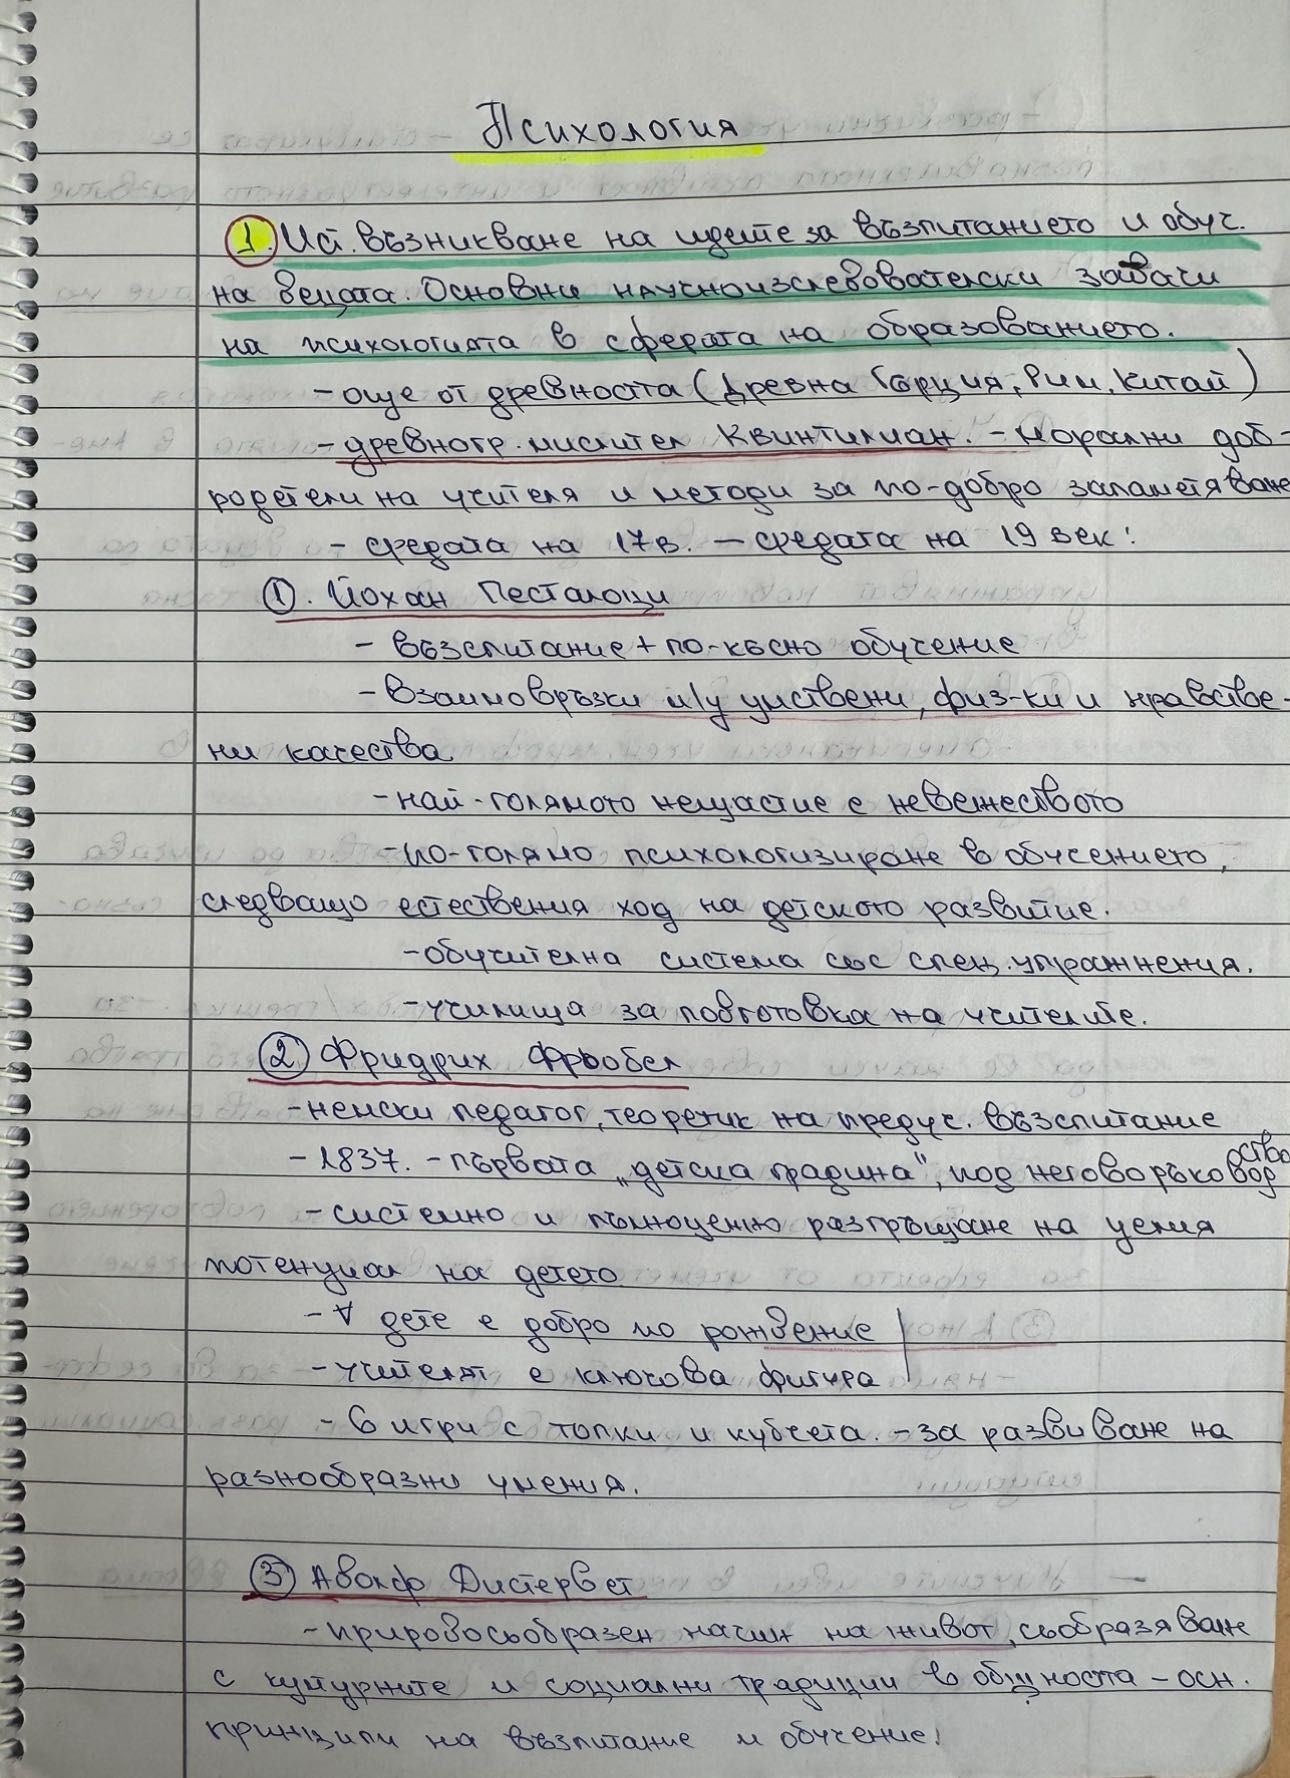 Психология
1. Ист. възникване на идеите за възпитанието и обуч.
на децата. Основни научноизследователски задачи
на психологията в сферата на образованието.
- още от древността (Древна Гърция, Рим, Китай)
- древногр. мислител Квинтилиан. - морални доб-
родетели на учителя и методи за по-добро запаметяване
- средата на 17в. - средата на 19 век:
1. Йохан Песталоци
- възпитание + по-късно обучение
- взаимовръзки м/у умствени, физ-ки и нравстве-
ни качества
- най-голямото нещастие е невежеството
- по-голямо психологизиране в обучението,
следващо естествения ход на детското развитие.
- обучителна система със спец. упражнения.
- училища за подготовка на учителите.
2 Фридрих Фрьобел
- немски педагог, теоретик на предуч. възпитание
- 1837. - първата „детска градина", под негово ръководство
- системно и пълноценно разгръщане на целия
потенциал на детето
- ∀ дете е добро по рождение
- учителят е ключова фигура
- 6 игри с топки и кубчета. - за развиване на
разнообразни умения.
3 Адолф Дистервег
- природосъобразен начин на живот, съобразяване
с културните и социални традиции в общността - осн.
принципи на възпитание и обучение!